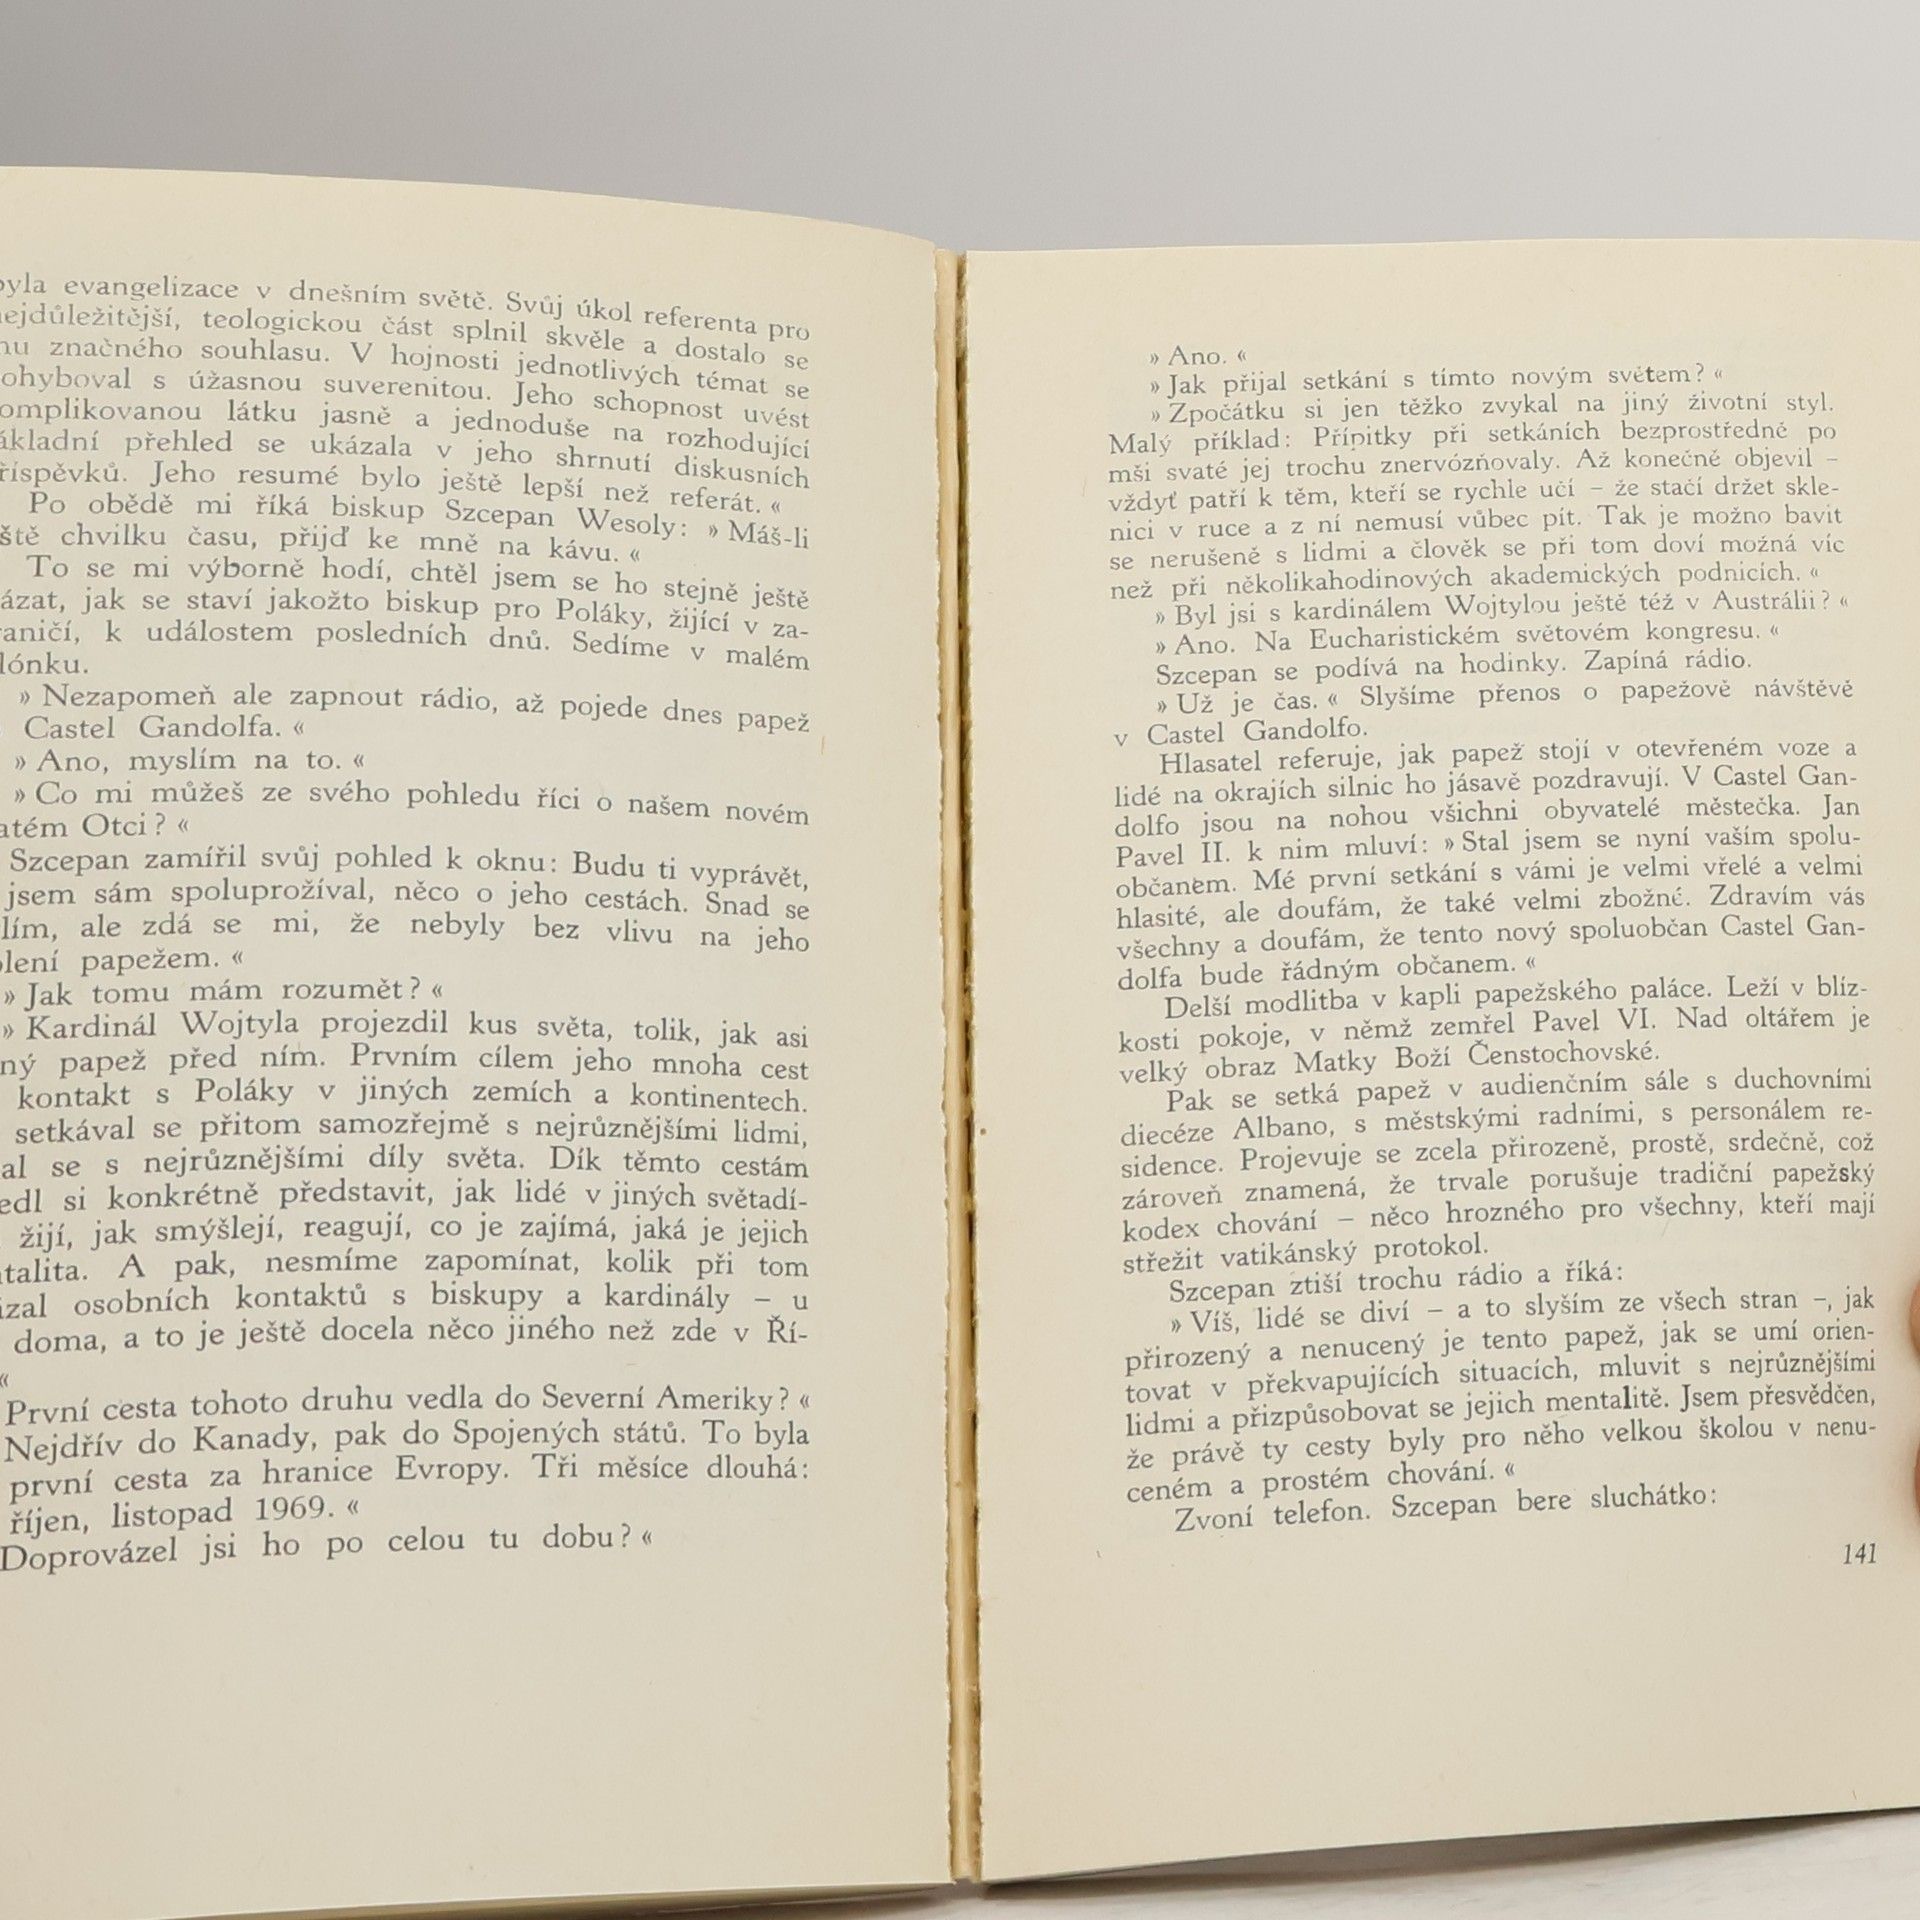 evangelizace v dnešním světě. Svůj úkol referenta pro
teologickou část splnil skvěle a dostalo se
značného souhlasu. V hojnosti jednotlivých témat se
s úžasnou suverenitou. Jeho schopnost uvést
látku jasně a jednoduše na rozhodující
přehled se ukázala v jeho shrnutí diskusních
Jeho resumé bylo ještě lepší než referát. «
Po obědě mi říká biskup Szcepan Wesoly: » Máš-li
chvilku času, přijď ke mně na kávu. «
To se mi výborně hodí, chtěl jsem se ho stejně ještě
jak se staví jakožto biskup pro Poláky, žijící v za-
k událostem posledních dnů. Sedíme v malém
» Nezapomeň ale zapnout rádio, až pojede dnes papež
Castel Gandolfa. «
» Ano, myslím na to. «
» Co mi můžeš ze svého pohledu říci o našem novém
Otci? «
Szcepan zamířil svůj pohled k oknu: Budu ti vyprávět,
jsem sám spoluprožíval, něco o jeho cestách. Snad se
ale zdá se mi, že nebyly bez vlivu na jeho
papežem. «
» Jak tomu mám rozumět? «
» Kardinál Wojtyla projezdil kus světa, tolik, jak asi
papež před ním. Prvním cílem jeho mnoha cest
kontakt s Poláky v jiných zemích a kontinentech.
setkával se přitom samozřejmě s nejrůznějšími lidmi,
se s nejrůznějšími díly světa. Dík těmto cestám
si konkrétně představit, jak lidé v jiných světadí-
žijí, jak smýšlejí, reagují, co je zajímá, jaká je jejich
A pak, nesmíme zapomínat, kolik při tom
osobních kontaktů s biskupy a kardinály – u
doma, a to je ještě docela něco jiného než zde v Ří-
«
První cesta tohoto druhu vedla do Severní Ameriky? «
Nejdřív do Kanady, pak do Spojených států. To byla
první cesta za hranice Evropy. Tři měsíce dlouhá:
říjen, listopad 1969. «
Doprovázel jsi ho po celou tu dobu? «
» Ano. «
» Jak přijal setkání s tímto novým světem? «
» Zpočátku si jen těžko zvykal na jiný životní styl.
Malý příklad: Přípitky při setkáních bezprostředně po
mši svaté jej trochu znervózňovaly. Až konečně objevil –
vždyť patří k těm, kteří se rychle učí – že stačí držet skle-
nici v ruce a z ní nemusí vůbec pít. Tak je možno bavit
se nerušeně s lidmi a člověk se při tom doví možná víc
než při několikahodinových akademických podnicích. «
» Byl jsi s kardinálem Wojtylou ještě též v Austrálii? «
» Ano. Na Eucharistickém světovém kongresu. «
Szcepan se podívá na hodinky. Zapíná rádio.
» Už je čas. « Slyšíme přenos o papežově návštěvě
v Castel Gandolfo.
Hlasatel referuje, jak papež stojí v otevřeném voze a
lidé na okrajích silnic ho jásavě pozdravují. V Castel Gan-
dolfo jsou na nohou všichni obyvatelé městečka. Jan
Pavel II. k nim mluví: » Stal jsem se nyní vaším spolu-
občanem. Mé první setkání s vámi je velmi vřelé a velmi
hlasité, ale doufám, že také velmi zbožné. Zdravím vás
všechny a doufám, že tento nový spoluobčan Castel Gan-
dolfa bude řádným občanem. «
Delší modlitba v kapli papežského paláce. Leží v blíz-
kosti pokoje, v němž zemřel Pavel VI. Nad oltářem je
velký obraz Matky Boží Čenstochovské.
Pak se setká papež v audienčním sále s duchovními
diecéze Albano, s městskými radními, s personálem re-
sidence. Projevuje se zcela přirozeně, prostě, srdečně, což
zároveň znamená, že trvale porušuje tradiční papežský
kodex chování – něco hrozného pro všechny, kteří mají
střežit vatikánský protokol.
Szcepan ztiší trochu rádio a říká:
» Víš, lidé se diví – a to slyším ze všech stran –, jak
přirozený a nenucený je tento papež, jak se umí orien-
tovat v překvapujících situacích, mluvit s nejrůznějšími
lidmi a přizpůsobovat se jejich mentalitě. Jsem přesvědčen,
že právě ty cesty byly pro něho velkou školou v nenu-
ceném a prostém chování. «
Zvoní telefon. Szcepan bere sluchátko:
141